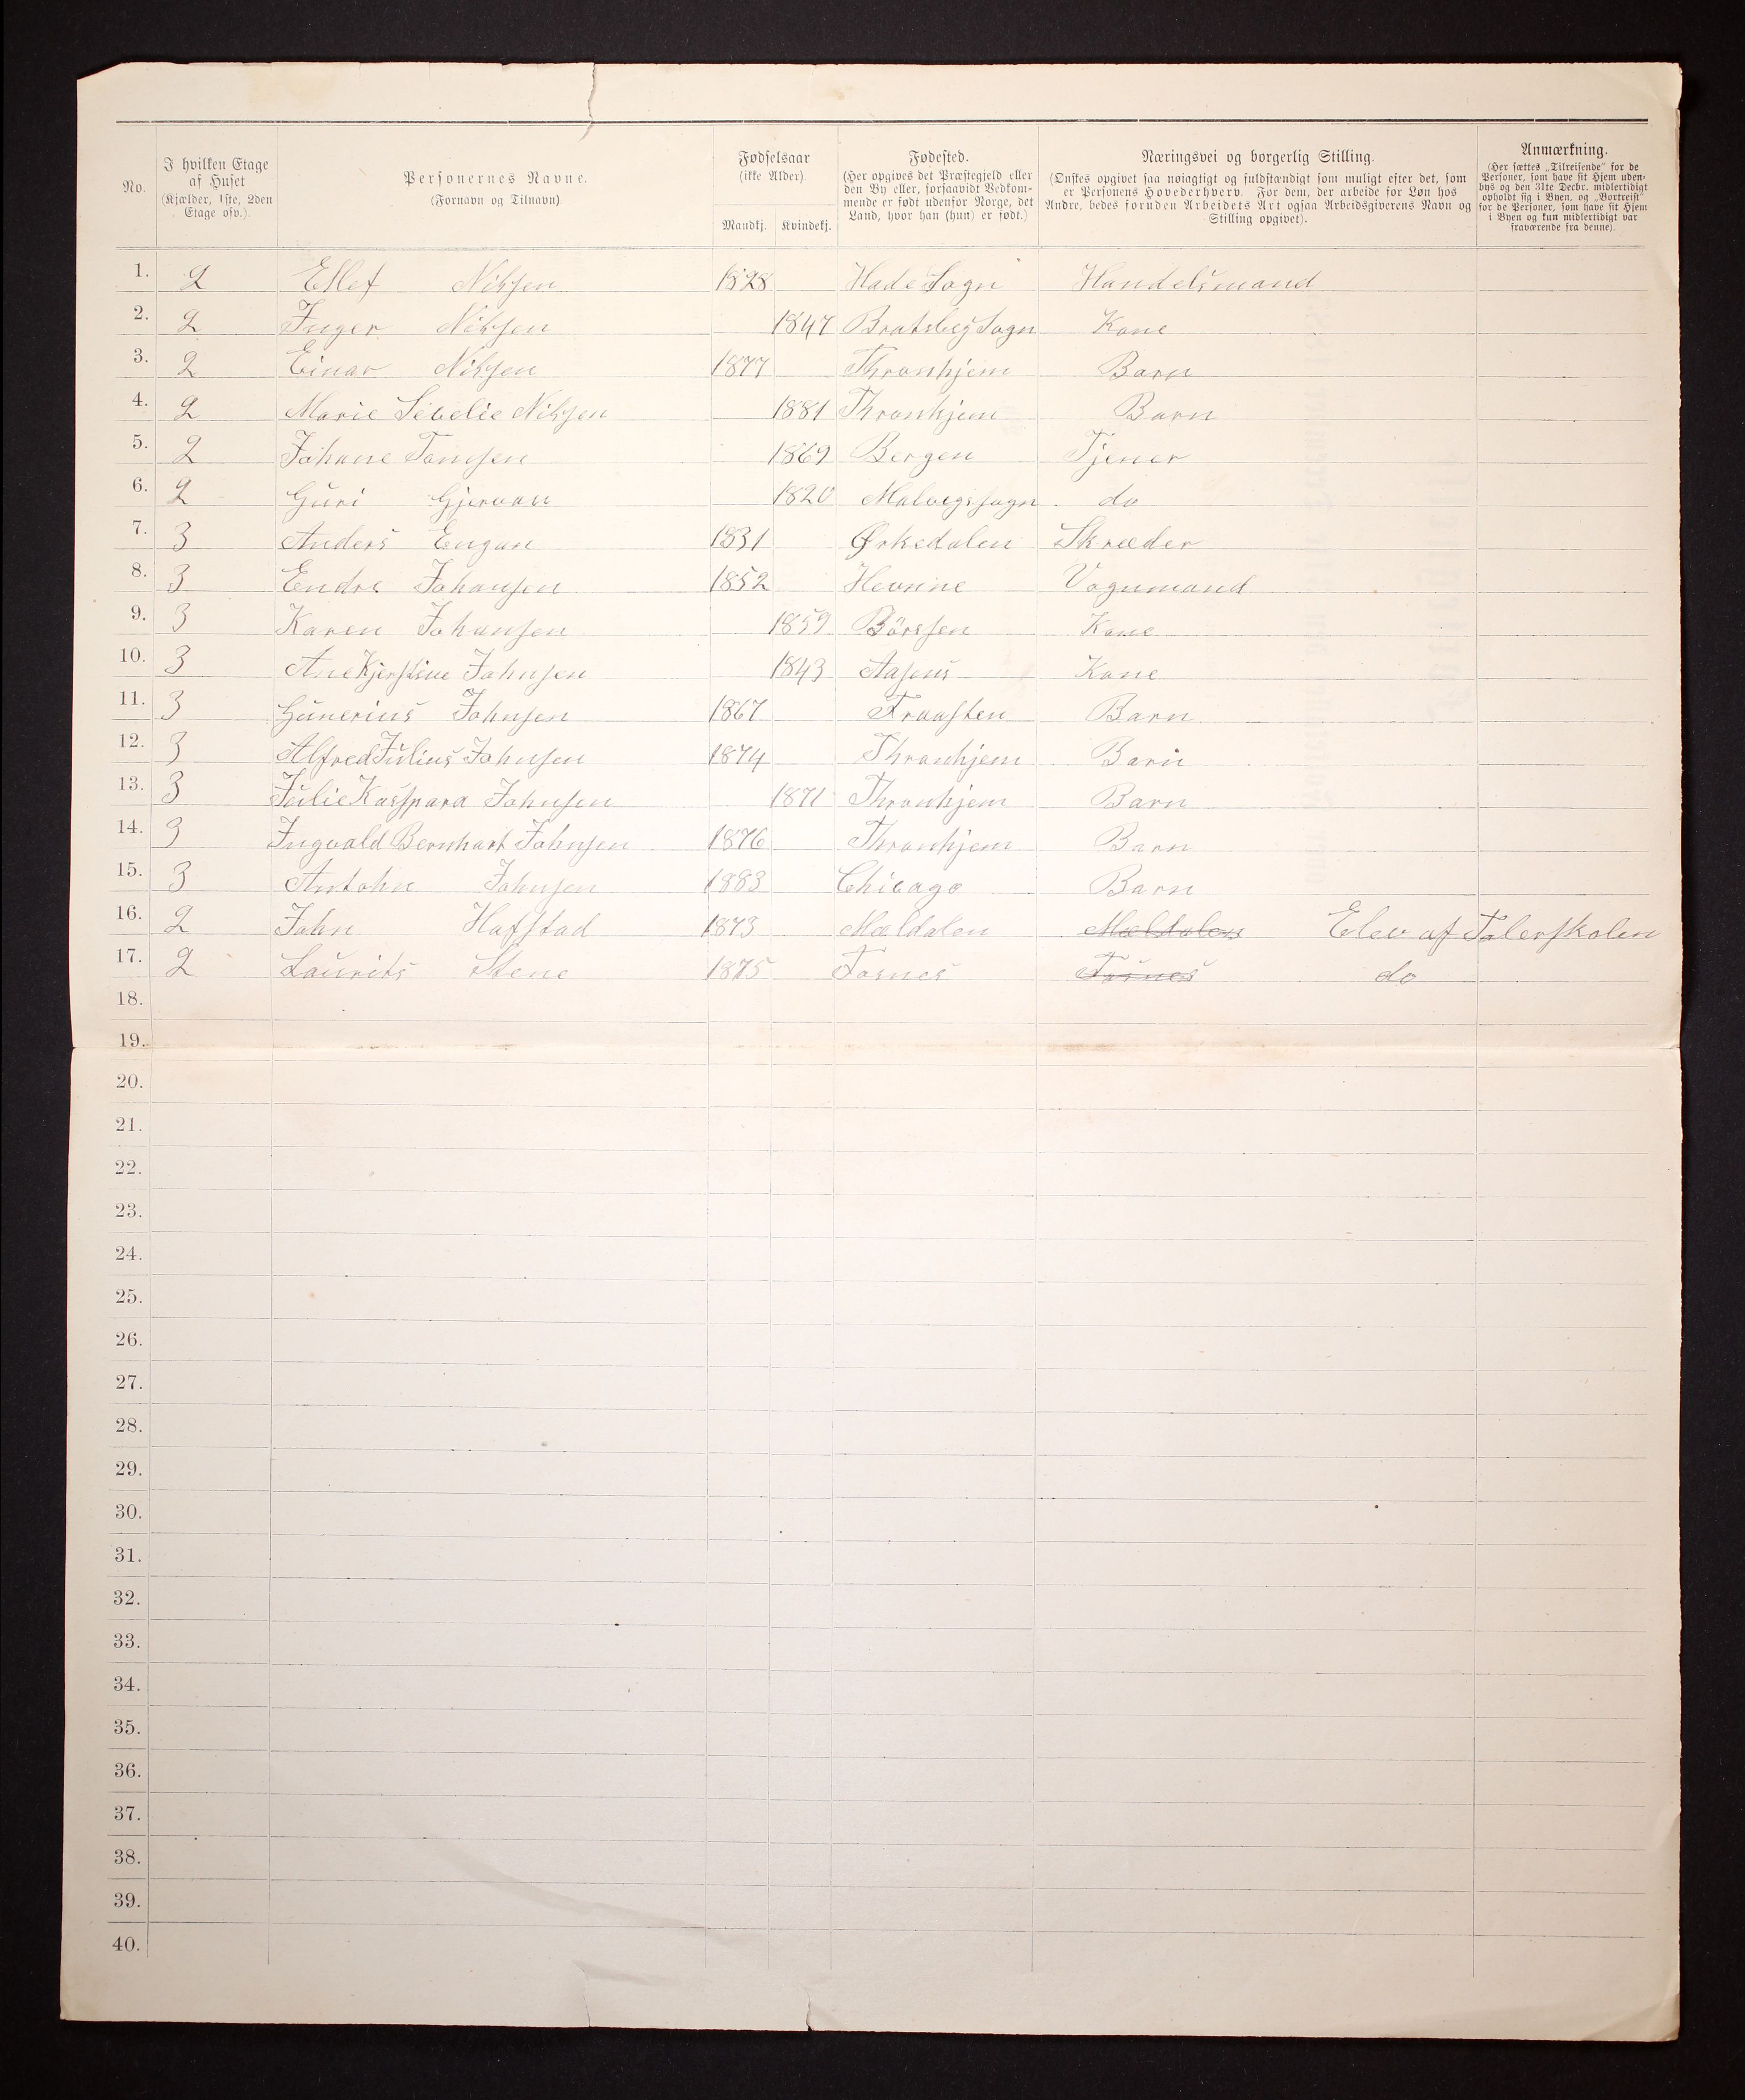 No.
I hvilken Etage
af Huset
(Kjælder, 1ste, 2den
Etage osv.).
Personernes Navne.
(Fornavn og Tilnavn).
Fødselsaar
(ikke Alder).
Mandkj. Kvindekj.
Fødested.
(Her opgives det Præstegjeld eller
den By eller, forsaavidt Vedkom-
mende er født udenfor Norge, det
Land, hvor han (hun) er født.)
Næringsvei og borgerlig Stilling.
(Ønskes opgivet saa nøiagtigt og fuldstændigt som muligt efter det, som
er Personens Hovederhverv. For dem, der arbeide for Løn hos
Andre, bedes foruden Arbeidets Art ogsaa Arbeidsgiverens Navn og
Stilling opgivet).
Anmærkning.
(Her sættes „Tilreisende" for de
Personer, som have sit Hjem uden-
bys og den 31te Decbr. midlertidigt
opholdt sig i Byen, og „Bortreist"
for de Personer, som have sit Hjem
i Byen og kun midlertidigt var
fraværende fra denne).
1. 2 Ellef Nilssen 1828 Hade Sogn Handelsmand
2. 2 Inger Nilssen 1847 Bratsbeg Sogn Kone
3. 2 Einar Nilssen 1877 Thronhjem Barn
4. 2 Marie Sevelie Nilssen 1881 Thronhjem Barn
5. 2 Johane Tomsen 1869 Bergen Tjener
6. 2 Guri Gjervan 1820 Malvigssogn do
7. 3 Anders Engan 1831 Ørkedalen Skræder
8. 3 Endre Johansen 1852 Hevnne Vognmand
9. 3 Karen Johansen 1859 Börssen Kone
10. 3 Ane Kjerstine Johnsen 1843 Aasens Kone
11. 3 Gunerius Johnsen 1867 Fraasten Barn
12. 3 Alfred Julius Johnsen 1874 Thronhjem Barn
13. 3 Julie Kasspara Johnsen 1871 Thronhjem Barn
14. 3 Ingvald Bernhart Johnsen 1876 Thronhjem Barn
15. 3 Antohn Johnsen 1883 Chicago Barn
16. 2 John Hafstad 1873 Mældalen Mældalen Elev af Tolerskolen
17. 2 Laurits Stene 1875 Fosnes Fosnes do
18.
19.
20.
21.
22.
23.
24.
25.
26.
27.
28.
29.
30.
31.
32.
33.
34.
35.
36.
37.
38.
39.
40.